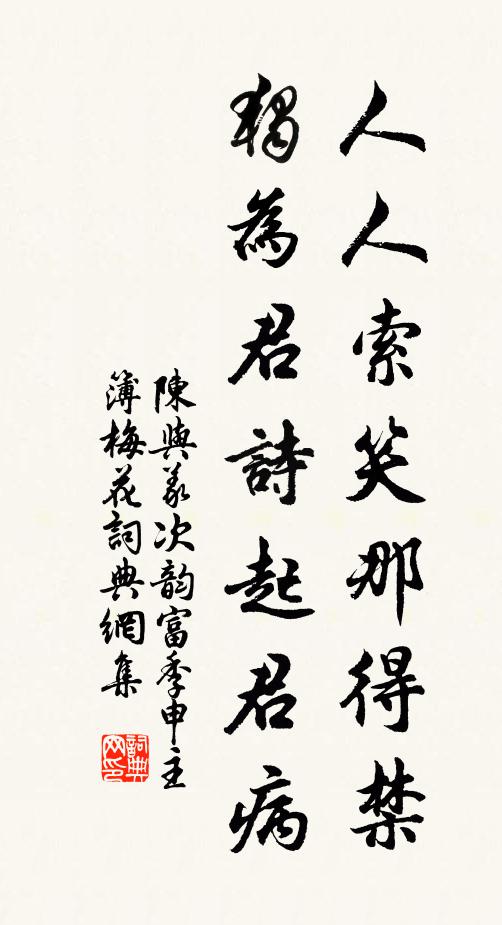 人人索笑那得禁
獨為君詩起君病
陳與義次韵富季申主
簿梅花詞典網集
詞典
网印